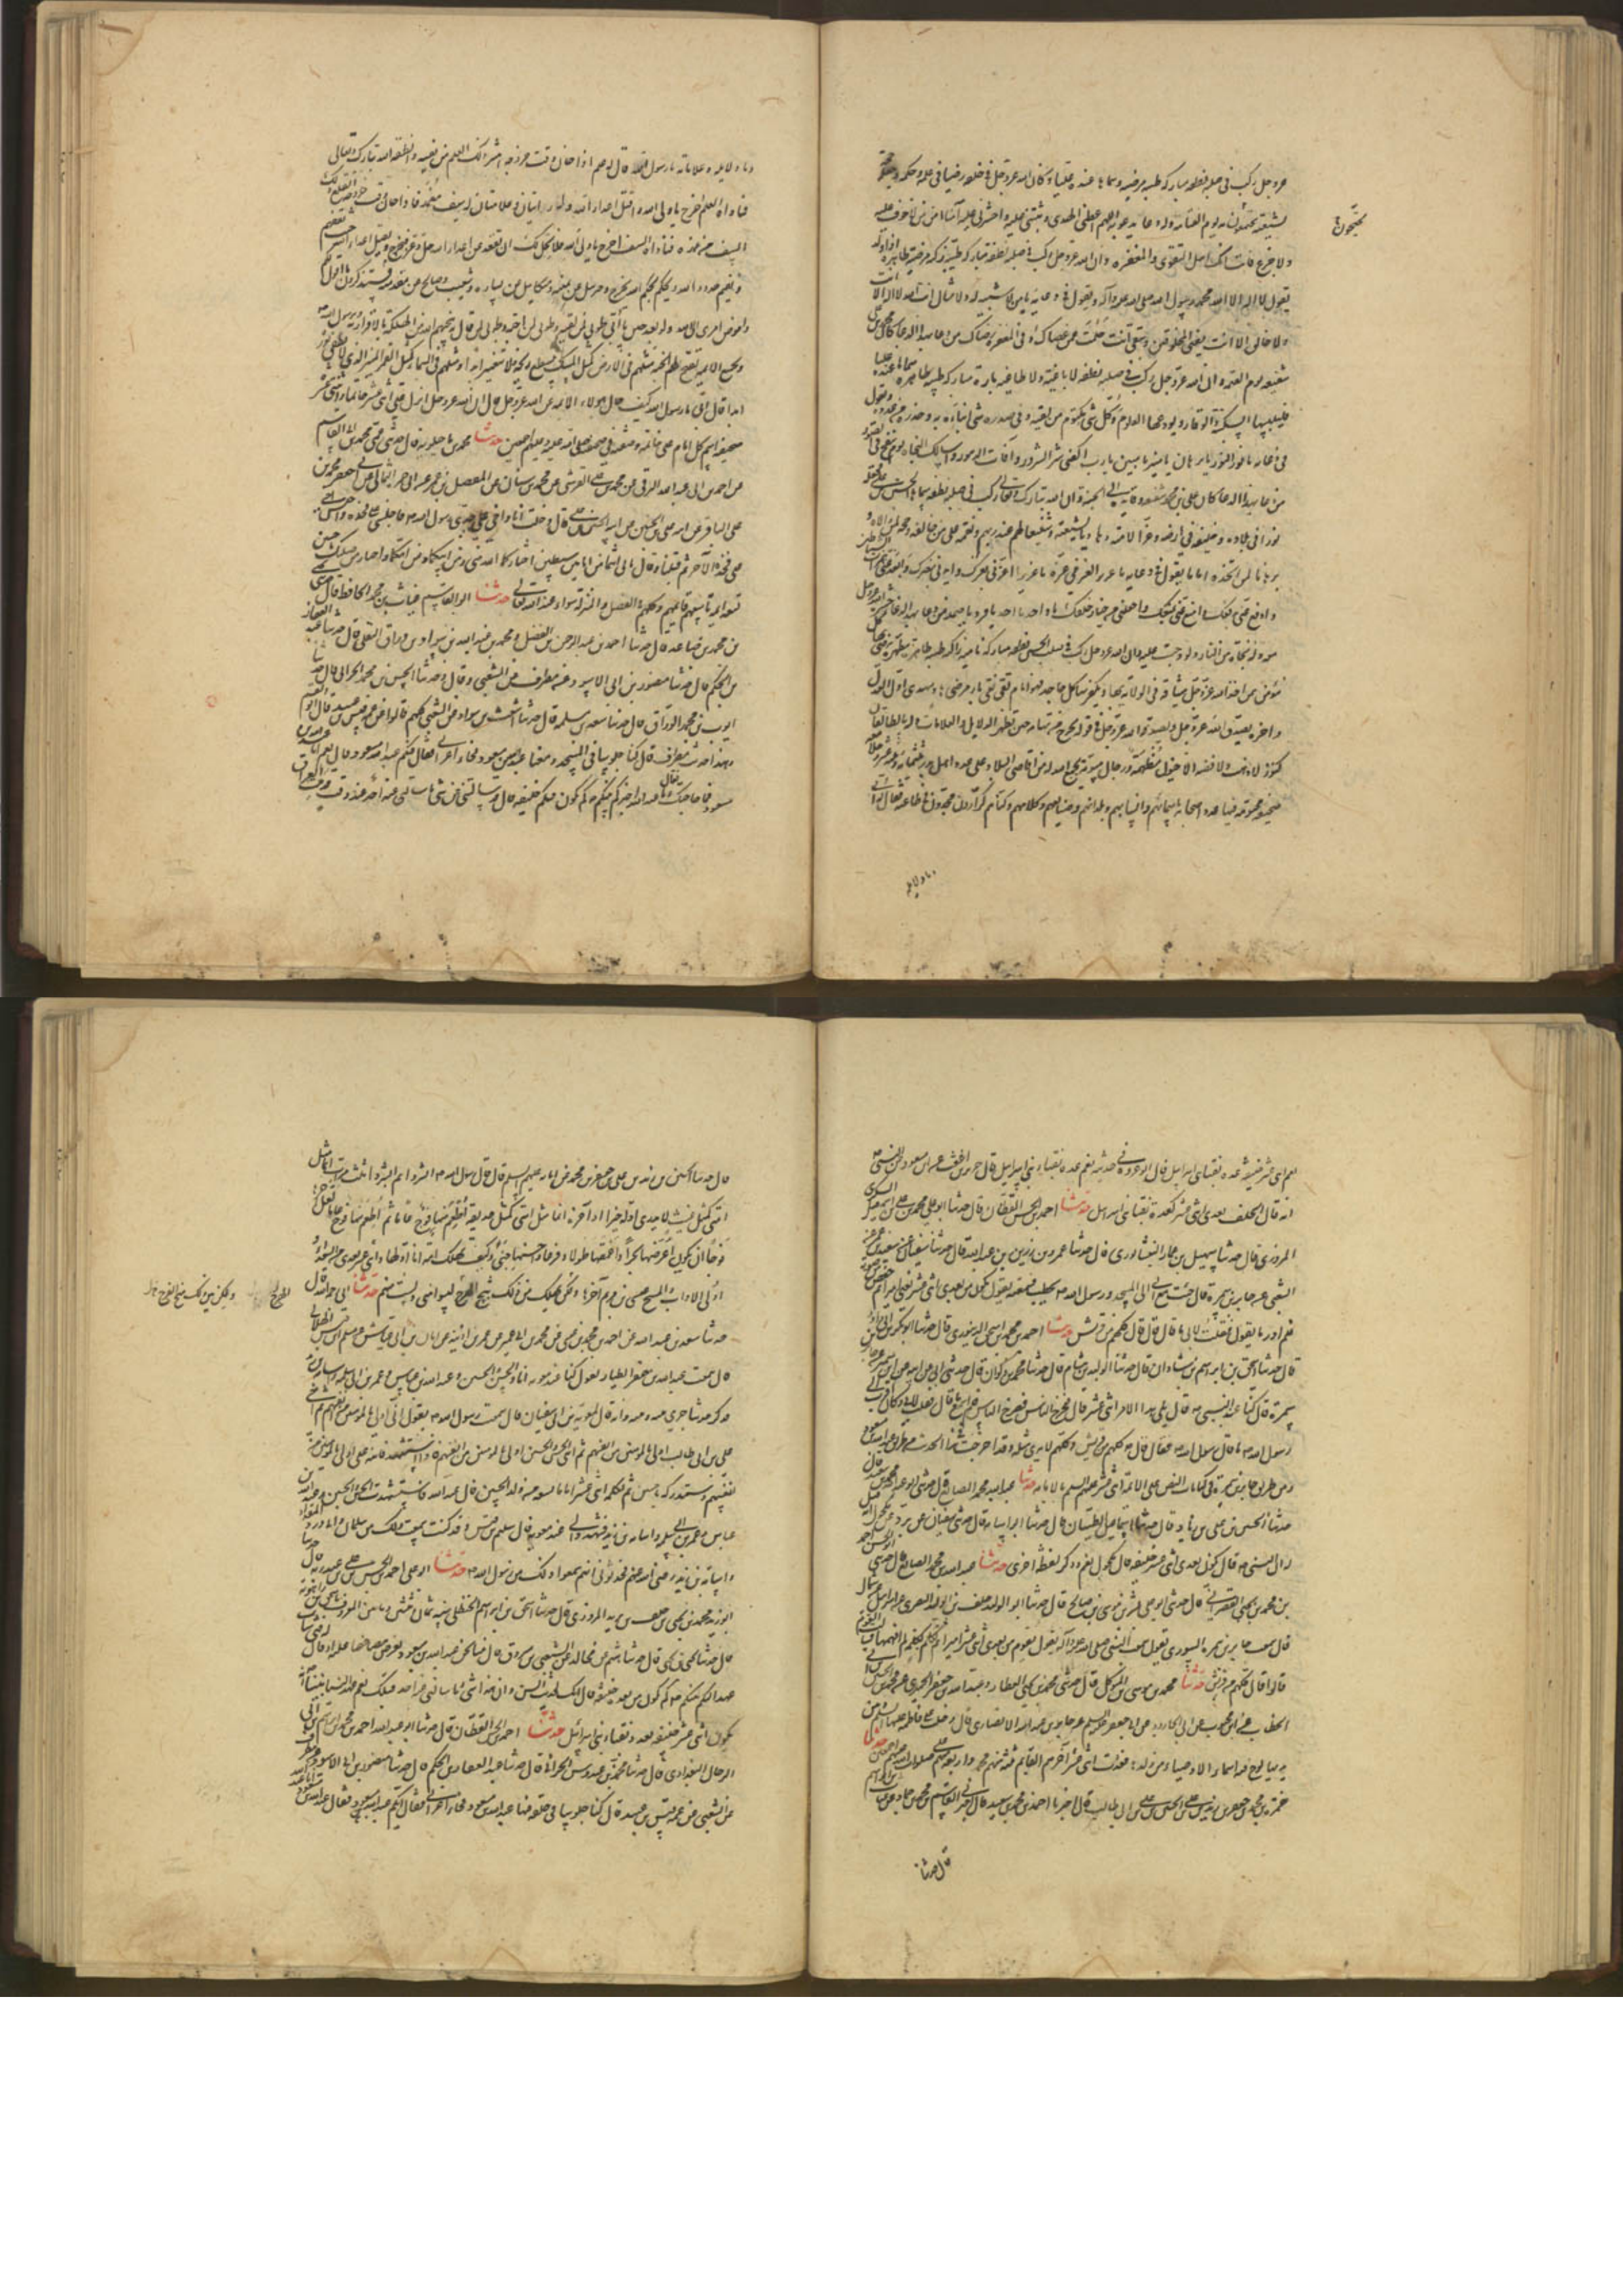 عز وجل ركب في صلبه نطفة مباركة طيبة مرضية وسماها عنده عليا وكان الله عز وجل في خلقه رضيا في علمه وحكمه
يحتجون به
لشيعته يوم القيمة وله دعاء يدعو به اللهم اعطني الهدى وثبتني عليه واحشرني عليه آمنا امن من لا خوف عليه
ولا جزع انك اهل التقوى واهل المغفرة وان الله عز وجل ركب في صلبه نطفة مباركة طيبة زكية مرضية طاهرة اذا ولد
يقول لا اله الا الله محمد رسول الله صلى الله عليه وآله ويقول في دعائه يا من لا شبيه له ولا مثال انت الله لا اله الا انت
ولا خالق الا انت تفني المخلوقين وتبقى انت حلمت عمن عصاك وفي المغفرة رضاك من دعا بهذا الدعاء كان محمد بن علي
شفيعه يوم القيمة ان الله عز وجل ركب في صلبه نطفة لا باغية ولا طاغية بارة مباركة طيبة طاهرة سماها عنده عليا
فيلبسها السكينة والوقار ويودعها العلوم وكل شي مكتوم من لقيه وفي صدره شي انبأه به وحذره من عدوه ويقول
في دعائه يا نور النور يا برهان يا منير يا مبين يا رب اكفني شر الشرور وآفات الدهور واسالك النجاة يوم ينفخ في الصور
من دعا بهذا الدعاء كان علي بن محمد شفيعه وقايده الى الجنة وان الله تبارك وتعالى ركب في صلبه نطفة سماها الحسن بن علي
نورا في بلاده وخليفة في ارضه وعزا لامته وهاديا لشيعته وشفيعا لهم عند ربهم ونقمة على من خالفه وحجة لمن والاه
برهانا لمن اتخذه اماما يقول في دعائه يا عزيز العز في عزه يا عزيزا اعزني بعزك وايدني بنصرك وابعد عني همزات الشياطين
وادفع عني بدفعك وامنع عني بمنعك واجعلني من خيار خلقك يا واحد يا احد يا فرد يا صمد من دعا بهذا الدعاء حشره الله عز وجل
معه ونجاه من النار ولو وجبت عليه وان الله عز وجل ركب في صلب الحسن نطفة مباركة نامية زاكية طيبة طاهرة مطهرة يرضى بها كل
مؤمن ممن اخذ الله عز وجل ميثاقه في الولاية بها ويكفر بها كل جاحد فهو امام تقي نقي بار مرضي هاد مهدي اول العدل
واخره يصدق الله عز وجل ويصدقه الله عز وجل في قوله يخرج من تهامة حين تظهر الدلايل والعلامات وله بالطالقان
كنوز لا ذهب ولا فضة الا خيول مطهمة ورجال مسومة يجمع الله له من اقاصي البلاد على عدد اهل بدر ثلثمائة وثلثة عشر رجلا معه
صحيفة مختومة فيها عدد اصحابه باسمائهم وانسابهم وبلدانهم وصنايعهم وكلامهم وكناهم كرارون مجدون في طاعته فقال له ابي
وما دلايله
وما دلايله وعلاماته يا رسول الله قال له علم اذا حان وقت خروجه انتشر ذلك العلم من نفسه وانطقه الله تبارك وتعالى
فناداه العلم اخرج يا ولي الله واقتل اعداء الله وله رايتان وعلامتان وله سيف مغمد فاذا حان وقت خروجه اقتلع ذلك
السيف من غمده فناداه السيف اخرج يا ولي الله فلا يحل لك ان تقعد عن اعداء الله فيخرج ويقتل اعداء الله حيث ثقفهم
ويقيم حدود الله ويحكم بحكم الله يخرج وجبرئيل عن يمينه وميكايل عن يساره وشعيب وصالح عن مقدمه فستذكرون ما اقول لكم
وافوض امري الى الله ولو بعد حين يا ابي طوبى لمن لقيه وطوبى لمن احبه وطوبى لمن قال به ينجيهم الله من الهلكة بالاقرار به وبرسول الله
وبجميع الائمة يفتح لهم الجنة مثلهم في الارض كمثل المسك يسطع ريحه فلا يتغير ابدا ومثلهم في السماء كمثل القمر المنير الذي لا يطفى نوره
ابدا قال ابي يا رسول الله كيف حال هؤلاء الائمة عن الله عز وجل قال ان الله عز وجل انزل علي اثني عشر خاتما واثنتي عشر
صحيفة اسم كل امام على خاتمه وصفته في صحيفته صلى الله عليه وعليهم اجمعين حدثنا محمد بن علي ماجيلويه قال حدثني عمي محمد بن ابي القاسم
عن احمد بن ابي عبد الله البرقي عن محمد بن علي القرشي عن محمد بن سنان عن المفضل بن عمر عن ابي حمزة الثمالي عن ابي جعفر محمد بن
علي الباقر عن ابيه علي بن الحسين عن ابيه الحسين بن علي قال دخلت انا واخي على جدي رسول الله فاجلسني على فخذه واجلس اخي
على فخذه الاخرى ثم قبلنا وقال بابي انتما من امامين سبطين اختاركما الله مني ومن ابيكما ومن امكما واختار من صلبك يا حسين
تسعة ائمة تاسعهم قايمهم وكلهم في الفضل والمنزلة سواء عند الله تعالى حدثنا ابو القاسم غياث بن محمد الحافظ قال
بن محمد بن صاعد قال حدثنا احمد بن عبد الرحمن بن الفضل ومحمد بن عبد الله بن سوار قال حدثنا عبد الغفار
بن الحكم قال حدثنا منصور بن ابي الاسود عن مطرف عن الشعبي وقال وحدثنا الحسين بن محمد الحراني قال حدثنا
ايوب بن محمد الوزان قال حدثنا سعيد بن مسلمة قال حدثنا اشعث بن سوار عن الشعبي كلهم قالوا عن عمه قيس بن عبيد قال ابو القسم
وهذا حديث مطرف قال كنا جلوسا في المسجد ومعنا عبد الله بن مسعود فجاء اعرابي فقال فيكم عبد الله بن مسعود قال نعم انا عبد الله بن
مسعود فما حاجتك قال هل اخبركم نبيكم كم يكون فيكم خليفة قال لقد سالتني عن شي ما سالني عنه احد منذ قدمت العراق
نعم اثني عشر خليفة عدة نقباء بني اسرائيل قال ابو عروبة في حديثه نعم عدة نقباء بني اسرائيل قال جرير عن اشعث عن ابن مسعود عن النبي
انه قال الخلفاء بعدي اثني عشر كعدة نقباء بني اسرائيل حدثنا احمد بن الحسن القطان قال حدثنا ابو علي محمد بن علي بن اسمعيل السكري
المروزي قال حدثنا سهل بن عمار النيشابوري قال حدثنا عمرو بن رزين بن عبد الله قال حدثنا سفيان عن سعيد بن عمرو عن
الشعبي عن جابر بن سمرة قال جئت مع ابي الى المسجد ورسول الله يخطب فسمعته يقول يكون من بعدي اثني عشر يعني اميرا ثم خفض صوته
فلم ادر ما يقول فقلت لابي ما قال قال قال كلهم من قريش حدثنا احمد بن محمد بن اسحق الدينوري قال حدثنا ابو بكر بن ابي داود
قال حدثنا اسحق بن ابراهيم بن شاذان قال حدثنا الوليد بن هشام قال حدثنا محمد بن ذكوان قال حدثني ابي عن ابيه عن ابن سيرين عن جابر بن
سمرة قال كنا عند النبي فقال يلي هذا الامر اثني عشر قال فصرخ الناس فلم اسمع ما قال فقلت لابي وكان اقرب الى
رسول الله ما قال رسول الله فقال قال كلهم من قريش وكلهم لا يرى مثله وقد اخرجت هذا الحديث من طرق عبد الله بن مسعود
ومن طرق جابر بن سمرة في كتاب النص على الائمة الاثني عشر عليهم السلم بالامامة حدثنا عبد الله بن محمد الصايغ قال حدثني ابو عبد الله محمد بن سعيد قال
حدثنا الحسن بن علي بن زياد قال حدثنا اسمعيل الطيان قال حدثنا ابو اسامة قال حدثني سفيان عن برد عن مكحول انه قيل
له ان النبي قال يكون بعدي اثني عشر خليفة قال مكحول نعم وذكر لفظة اخرى حدثنا عبد الله بن محمد الصايغ قال حدثني ابو الحسين احمد
بن محمد بن يحيى القصراني قال حدثني ابو علي بشر بن موسى بن صالح قال حدثنا ابو الوليد خلف بن الوليد البصري عن اسرائيل عن سماك
قال سمعت جابر بن سمرة السوائي يقول سمعت النبي صلى الله عليه وآله يقول يقوم من بعدي اثني عشر اميرا ثم تكلم بكلمة لم افهمها فسالت القوم
فقالوا قال كلهم من قريش حدثنا محمد بن موسى بن المتوكل قال حدثني محمد بن يحيى العطار وعبد الله بن جعفر الحميري عن محمد بن الحسين بن ابي
الخطاب عن ابن محبوب عن ابي الجارود عن ابي جعفر عليه السلم عن جابر بن عبد الله الانصاري قال دخلت على فاطمة عليها السلم وبين
يديها لوح فيه اسماء الاوصياء من ولدها فعددت اثني عشر آخرهم القايم ثلثة منهم محمد واربعة منهم علي صلوات الله عليهم اجمعين حدثنا
حمزة بن محمد بن جعفر بن محمد بن زيد بن علي بن الحسين بن علي بن ابي طالب قال اخبرنا احمد بن محمد بن سعيد قال اخبرني القاسم بن محمد بن حماد عن غياث بن ابراهيم
قال حدثنا
قال حدثنا الحسين بن زيد بن علي عن جعفر بن محمد عن ابائه عليهم السلم قال قال رسول الله ابشروا ثم ابشروا ثلث مرات انما مثل
امتي كمثل غيث لا يدرى اوله خير ام آخره انما مثل امتي كمثل حديقة اطعم منها فوج عاما ثم اطعم منها فوج عاما لعل آخرها
فوجا ان يكون اعرضها بحرا واعمقها طولا وفرعا واحسنها جنى وكيف تهلك امة انا اولها واثني عشر من بعدي من السعداء
اولي الالباب والمسيح عيسى بن مريم آخرها ولكن يهلك بين ذلك نتج الهرج ليسوا مني ولست منهم حدثنا ابي رحمه الله قال
ولكن بين ذلك
حدثنا سعد بن عبد الله عن احمد بن محمد بن عيسى عن محمد بن ابي عمير عن عمر بن اذينة عن ابان بن ابي عياش عن سليم بن قيس الهلالي
قال سمعت عبد الله بن جعفر الطيار يقول كنا عند معوية انا والحسن والحسين وعبد الله بن عباس وعمر بن ابي سلمة واسامة بن زيد
فذكر حديثا جرى بينه وبينه وانه قال لمعوية بن ابي سفيان قال سمعت رسول الله يقول اني اولى بالمؤمنين من انفسهم ثم اخي
علي بن ابي طالب اولى بالمؤمنين من انفسهم ثم ابني الحسن والحسين اولى بالمؤمنين من انفسهم فاذا استشهد فابنه علي اولى بالمؤمنين من
انفسهم وستدركه يا حسين ثم تكمله اثنى عشر اماما تسعة من ولد الحسين قال عبد الله فاستشهدت الحسن والحسين وعبد الله بن
عباس وعمر بن ابي سلمة واسامة بن زيد فشهدوا لي عند معوية قال سليم بن قيس وقد كنت سمعت ذلك من سلمان وابي ذر والمقداد
واسامة بن زيد رضي الله عنهم فحدثوني انهم سمعوا ذلك من رسول الله حدثنا ابو علي احمد بن الحسن بن علي بن عبد ربه قال حدثنا
ابو يزيد محمد بن يحيى بن خلف بن يزيد المروزي قال حدثنا اسحق بن ابراهيم الحنظلي سنة ثمان وثلثين ومأتين المعروف باسحق بن راهويه
قال حدثنا يحيى بن يحيى قال حدثنا هشيم عن مجالد عن الشعبي عن مسروق قال بينا نحن عند عبد الله بن مسعود نعرض مصاحفنا عليه اذ قال له فتى شاب
هل عهد اليكم نبيكم كم يكون من بعده خليفة قال انك لحدث السن وان هذا شي ما سالني عنه احد قبلك نعم عهد الينا نبينا انه
يكون اثني عشر خليفة بعدد نقباء بني اسرائيل حدثنا احمد بن الحسن القطان قال حدثنا ابو عبد الله احمد بن محمد بن ابراهيم بن ابي
الرجال البغدادي قال حدثنا محمد بن عبدوس الحراني قال حدثنا عبد الغفار بن الحكم قال حدثنا منصور بن ابي الاسود عن مطرف
عن الشعبي عن عمه قيس بن عبيد قال كنا جلوسا في حلقة فيها عبد الله بن مسعود فجاء اعرابي فقال ايكم عبد الله بن مسعود فقال عبد الله انا عبد الله بن مسعود